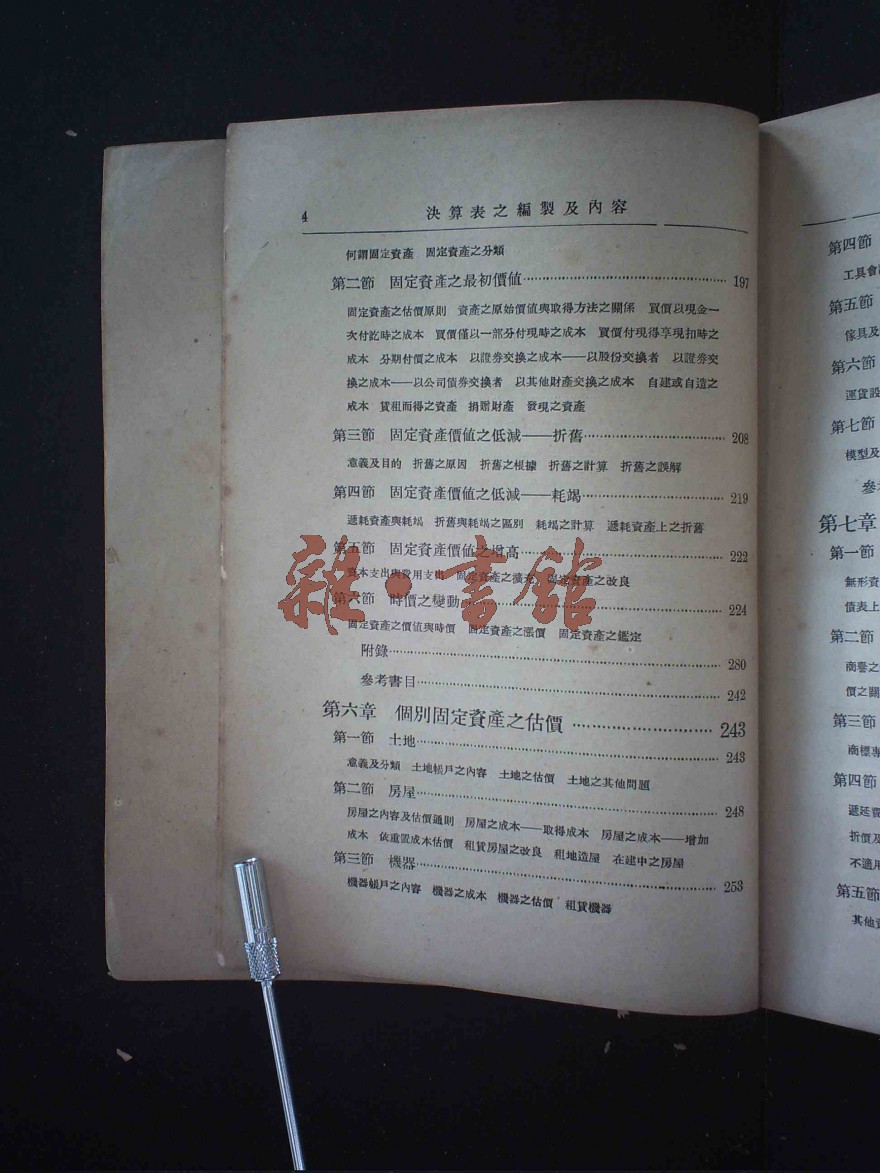 4 決算表之編製及內容
何謂固定資產 固定資產之分類
第二節 固定資產之最初價值 197
固定資產之估價原則 資產之原始價值與取得方法之關係 買價以現金一
次付訖時之成本 買價僅以一部分付現時之成本 買價付現得享現扣時之
成本 分期付價之成本 以證券交換之成本——以股份交換者 以證券交
換之成本——以公司債券交換者 以其他財產交換之成本 自建或自造之
成本 賃租而得之資產 捐贈財產 發現之資產
第三節 固定資產價值之低減——折舊 208
意義及目的 折舊之原因 折舊之根據 折舊之計算 折舊之誤解
第四節 固定資產價值之低減——耗竭 219
遞耗資產與耗竭 折舊與耗竭之區別 耗竭之計算 遞耗資產上之折舊
第五節 固定資產價值之增高 222
資本支出與費用支出 固定資產之擴充 固定資產之改良
第六節 時價之變動 224
固定資產之價值與時價 固定資產之漲價 固定資產之鑑定
附錄 280
參考書目 242
第六章 個別固定資產之估價 243
第一節 土地 243
意義及分類 土地帳戶之內容 土地之估價 土地之其他問題
第二節 房屋 248
房屋之內容及估價通則 房屋之成本——取得成本 房屋之成本——增加
成本 依重置成本估價 租賃房屋之改良 租地造屋 在建中之房屋
第三節 機器 253
機器帳戶之內容 機器之成本 機器之估價 租賃機器
雜·書館
第四節
工具會
第五節
傢具及
第六節
運貨設
第七節
模型及
參
第七章
第一節
無形資
債表上
第二節
商譽之
價之關
第三節
商標專
第四節
遞延費
折價及
不適用
第五節
其他資